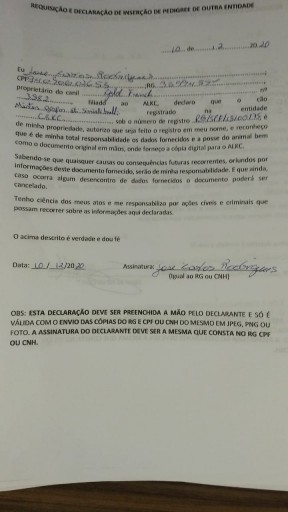 REQUISIÇÃO E DECLARAÇÃO DE INSERÇÃO DE PEDIGREE DE OUTRA ENTIDADE
10 de 12 2020
Eu Jose Carlos Rodrigues
CPF RG
proprietário do canil Gold French nº
3982 filiado ao ALKC, declaro que o cão
registrado na entidade
CBKC sob o número de registro é
de minha propriedade, autorizo que seja feito o registro em meu nome, e reconheço
que é de minha total responsabilidade os dados fornecidos e a posse do animal bem
como o documento original em mãos, onde forneço a cópia digital para o ALKC.
Sabendo-se que quaisquer causas ou consequências futuras recorrentes, oriundos por
informações deste documento fornecido, serão de minha responsabilidade. E que ainda,
caso ocorra algum desencontro de dados fornecidos o documento poderá ser
cancelado.
Tenho ciência dos meus atos e me responsabilizo por ações cíveis e criminais que
possam recorrer sobre as informações aqui declaradas.
O acima descrito é verdade e dou fé
Data: 10/12/2020 Assinatura: Jose Carlos Rodrigues
(Igual ao RG ou CNH)
OBS: ESTA DECLARAÇÃO DEVE SER PREENCHIDA A MÃO PELO DECLARANTE E SÓ É
VÁLIDA COM O ENVIO DAS CÓPIAS DO RG E CPF OU CNH DO MESMO EM JPEG, PNG OU
FOTO. A ASSINATURA DO DECLARANTE DEVE SER A MESMA QUE CONSTA NO RG CPF
OU CNH.